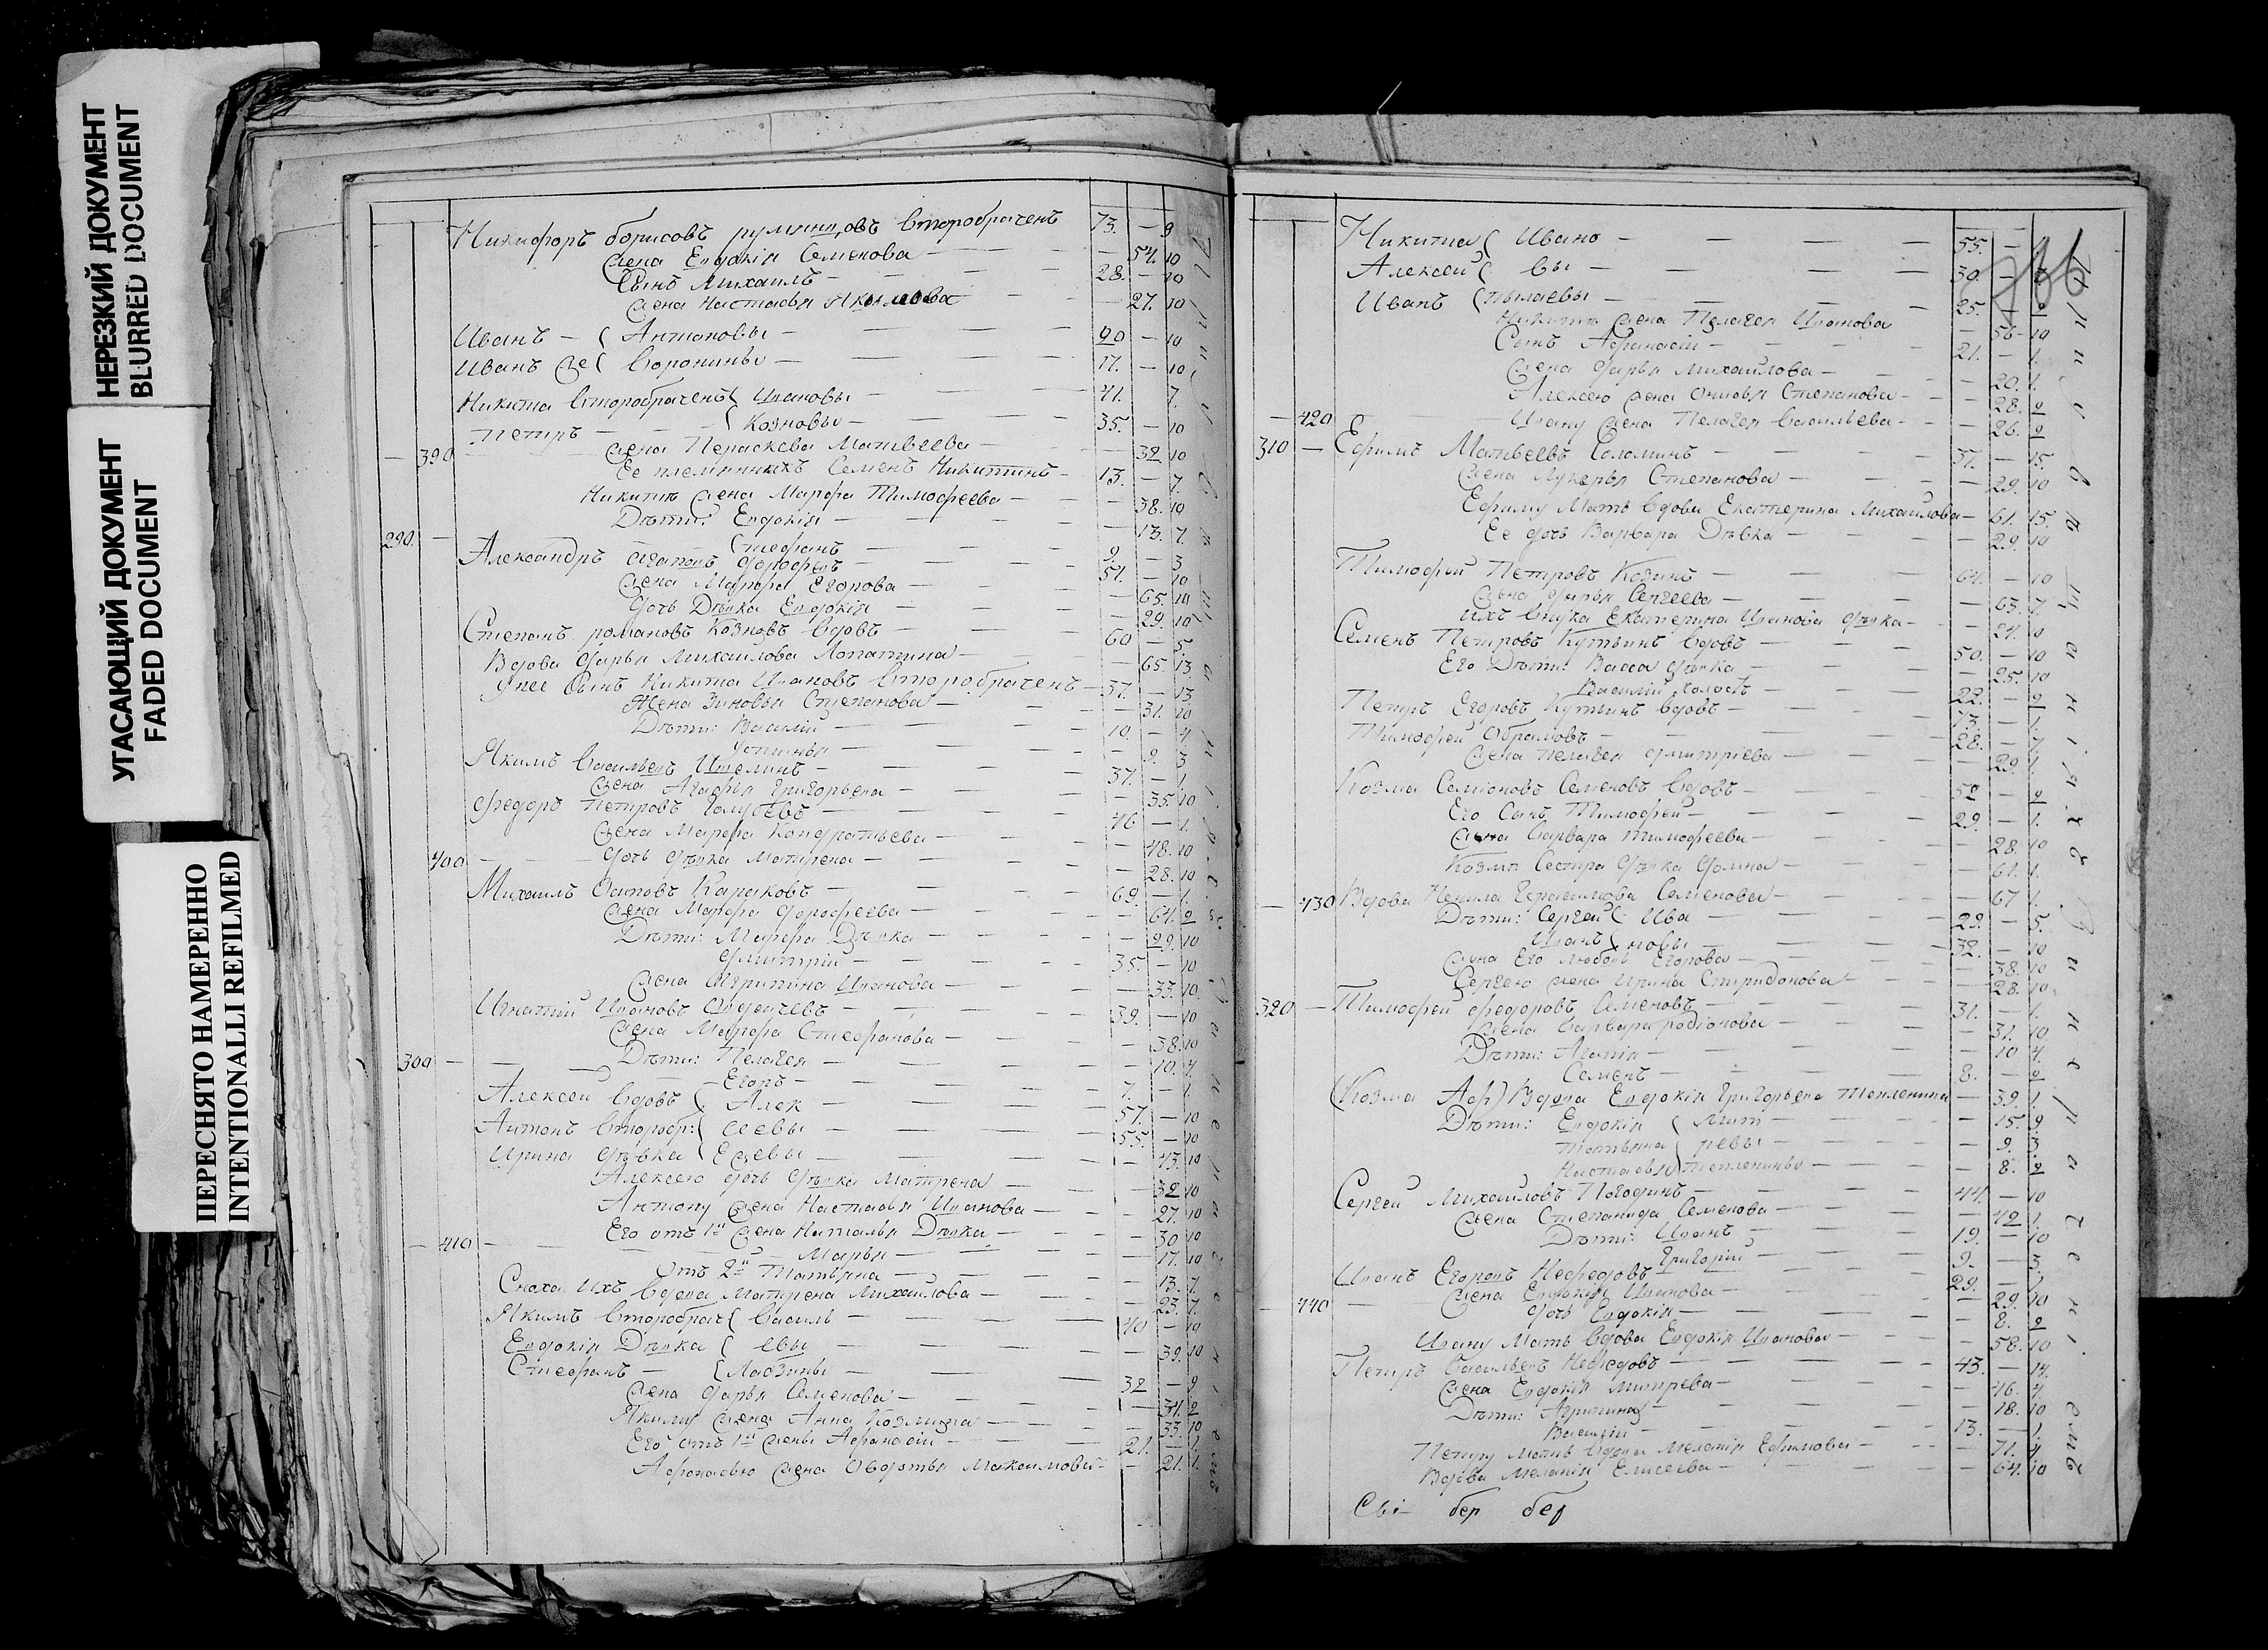 НЕРЕЗКИЙ ДОКУМЕНТ
BLURRED DOCUMENT
УГАСАЮЩИЙ ДОКУМЕНТ
FADED DOCUMENT
ПЕРЕСНЯТО НАМЕРЕННО
INTENTIONALLI REFILMED
Никифоръ борисовъ румянцовъ второбраченъ 73. — 9
жена Евдокія Семенова — 54. 10
Сынъ Михаилъ — 28. — 10
жена Настасья — 27. 10
Иванъ — ( Антоновы — 20 — 10
Иванъ же ( Воронины — 17. — 10
Никита второбраченъ ( Ивановы — 41. 7.
Петръ — ( Козновы — 35. — 10
— 390 жена Параскева Матвеева — 32 10
Ее племянникъ Семенъ Никитинъ — 13. — 7.
Никитѣ жена Марфа Тимофеева — 38. 10
Дѣти: Евдокія — 13. 7.
290. — Стефанъ — 9. — 3
Александръ Агаповъ — 57. — 10
жена Марфа Егорова — 65. 10
дочь Дѣвка Евдокія — 29. 10
Степанъ романовъ Козновъ вдовъ — 60 — 5
Вдова дарья Михайлова Лопатина — 65. 13.
У нее Сынъ Никита Ивановъ второбраченъ — 37. — 13.
Жена Зиновья Степанова — 31. 10
Дѣти: Василій — 10. — 4
Устинья — 9. 3
Якимъ Васильевъ — 37. — 1.
жена Агафья Григорьева — 35. 10
Федоръ Петровъ Голубевъ — 46 — 1.
жена Марфа Кондратьева — 48. 10
400 — дочь дѣвка Матрена — 28. 10
Михаилъ Осиповъ Караковъ — 69. — 1.
жена Марфа дорофеева — 64. 2
Дѣти: Марфа Дѣвка — 29. 10
дмитрій — 35. — 10
жена Агрипина Иванова — 33. 10.
Игнатій Ивановъ — 39. — 10
жена Марфа Стефанова — 38. 10
300 — Дѣти: Пелагея — 10. 4
Егоръ — 7. — 1.
Алексей вдовъ ( Алек — 57. — 10
Антонъ второбр: ( сеевы — 55. — 10
Ирина дѣвка ( — 43. 10
Алексею дочь дѣвка Матрена — 32 10
Антону жена Настасья Иванова — 27. 10
Его отъ 1й жена Наталья Дѣвка — 30 10
— 410 — Марья — 17. 10
отъ 2й Татьяна — 13. 7.
Сноха Ихъ вдова Матрена Михайлова — 23. 7.
Якимъ второбрач ( Василь — 40 — 10
Евдокія Дѣвка ( евы — 39. 10
Стефанъ — ( Лабзины — 32 — 9
жена дарья Семенова — 34. 2
Якиму жена Анна Козмина — 33. 10
Его отъ 1й жены Афанасій — 21. — 1.
Афонасью жена Овдотья Максимова — 21. 1.
Никита ( Ивано — 55. —
Алексей ( вы — 30. —
Иванъ ( пылаевы — 25. — 9
Никитѣ жена Пелагея Иванова — 56 — 10
Сынъ Афанасій — 21. — 1.
жена дарья Михайлова — 20. 1.
Алексею жена Степанова — 28. 9
— 420 Ивану жена Пелагея Васильева — 26. 9
310 — Ефимъ Матвеевъ Соломинъ — 37. — 15.
жена Лукерья Степанова — 29. 10
Ефиму Мать вдова Екатерина Михайлова — 61. 15.
Ее дочь Варвара Дѣвка — 29. 10
Тимофей Петровъ Козинъ — 64. — 10
жена дарья Сергеева — 63. 7.
Ихъ внука Екатерина Иванова дѣвка — 24. 10
Семенъ Петровъ Кутьинъ вдовъ — 50. — 10
Его Дѣти: Васса дѣвка — 25. 10
Василій холостъ — 22. — 9
Петръ Егоровъ Кутьинъ вдовъ — 73. — 1.
Тимофей Обрамовъ — 28. — 7.
жена Пелагея дмитріева — 29. 1.
Козма Семіоновъ Семеновъ вдовъ — 52 — 9
Его Сынъ Тимофей — 29. — 1.
жена Варвара тимофеева — 28. 10
Козмѣ Сестра дѣвка домна — 61. 1.
— 430 Вдова Ненила Герасимова Семенова — 67 1.
Дѣти: Сергей ( Ива — 29. — 5.
Иванъ ( новы — 32. — 10
жена Его любовь Егорова — 38. 10
Сергею жена Ирина Спиридонова — 28. 10.
320 — Тимофей федоровъ Семеновъ — 31. — 1.
жена Варвара родіонова — 31. 10
Дѣти: Агапія — 10 4.
Семенъ — 8. — 9
(Козма Аф) Вдова Евдокія Григорьева Тепленина — 39. 1.
Дѣти: Евдокія ( Мит — 15. 9.
Татьяна ( ревы — 9. 3.
Настасья ( тепленины — 8. 9
Сергей Михайловъ Погодинъ — 44. — 10
жена Степанида Семенова — 42 1.
Дѣти: Иванъ — 19. — 10
Григорій — 9. — 3.
Иванъ Егоровъ Нефедовъ — 29. — 1.
жена Иванова — 29. 10
— 440 — дочь Евдокія — 8. 9
Ивану Мать вдова Евдокія Иванова — 58. 10
Петръ Васильевъ Нефедовъ — 43. — 14.
жена Евдокія Митрева — 46. 4.
Дѣти: Агрипина — 18. 10
Василій — 13. — 1.
Петру мать вдова Меланія Ефимова — 71. 4.
Вдова Меланія Елисеева — 64. 10
бер бер